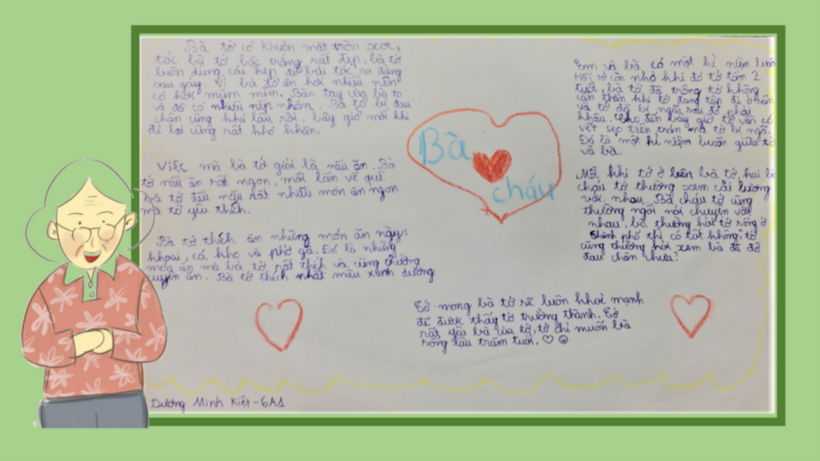 Bà tớ có khuôn mặt tròn xoe,
tóc bà tớ bạc trắng rất đẹp, bà tớ
luôn dùng cái kẹp để búi tóc ra đằng
sau gáy. Vì bà tớ ăn hơi nhiều nên
có hơi mũm mĩm. Bàn tay của bà to
và đã có nhiều nếp nhăn. Bà tớ bị đau
chân cũng khá lâu rồi, bây giờ mỗi khi
đi lại cũng rất khó khăn.
Việc mà bà tớ giỏi là nấu ăn. Bà
tớ nấu ăn rất ngon, mỗi lần về quê
bà tớ đều nấu rất nhiều món ăn ngon
mà tớ yêu thích.
Bà tớ thích ăn những món ăn này:
khoai, cá kho và phở gà. Đó là những
món ăn mà bà tớ rất thích và cũng thường
xuyên ăn. Bà tớ thích nhất màu xanh dương
Bà
cháu
Em và bà có một kỉ niệm
tớ còn nhớ khi đó tớ tầm 2
tuổi, bà tớ đã trông tớ không
cẩn thận khi tớ đang tập đi
và tớ đã bị ngã sau đó phải
khâu. Cho đến bây giờ tớ vẫn có
vết sẹo trên trán mà tớ bị ngã.
Đó là một kỉ niệm buồn giữa tớ
và bà.
Mỗi khi tớ ở bên bà tớ, hai bà
cháu tớ thường xem cải lương
với nhau. Bà cháu tớ cũng
thường ngồi nói chuyện với
nhau, bà thường hỏi tớ sống ở
thành phố thì có tốt không? tớ
cũng thường hỏi xem bà đã đỡ
đau chân chưa?
Tớ mong bà tớ sẽ luôn khoẻ mạnh
để được thấy tớ trưởng thành. Tớ
rất yêu bà của tớ, tớ chỉ muốn bà
sống lâu trăm tuổi.
Dương Minh Kiệt-6A1